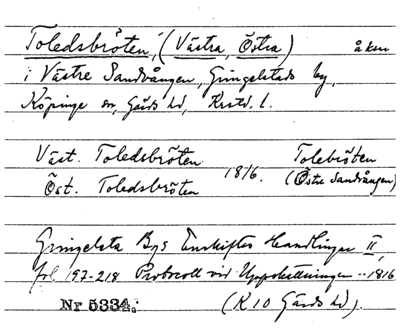 Toledsbröten, (Västra, Östra) åker
i Västre Sandvången, Gringelstads by,
Köpinge sn, Gärds hd, Krstd. l.
Väst. Toledsbröten 1816. Tolebröten
Öst. Toledsbröten (Östre Sandvången)
Gringelsta Bys Enskiftes Handlingar II,
fol 197-218 Protocoll vid Uppskattningen -- 1816
Nr 5334. (K 10 Gärds hd).